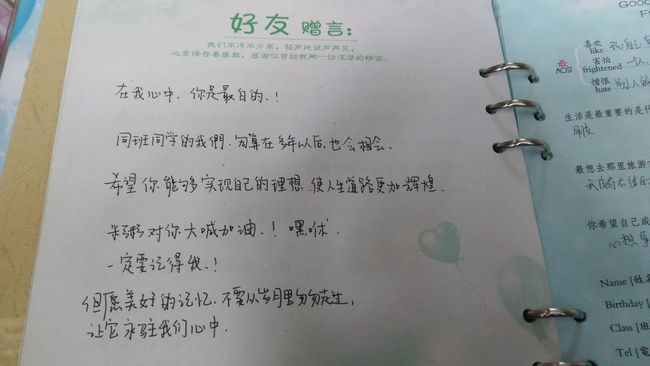 好友 赠言：
我们不得不分离，轻声地说声再见，
心里保存着感激，感谢你曾给我那一份深厚的情谊。
在我心中，你是最白的.！
同班同学的我們，勿算在多年以后，也会相会、
希望你能够多实现自己的理想、使人生道路更加辉煌.
米粥对你大喊加油.！嘿咻.
一定要记得我.！
但愿美好的记忆，不要从岁月里匆匆走过，
让它永驻我们心中.
GOO
F
喜欢
like
最
MOST
害怕
frightened
憎恨
hate
别人
生活是最重要的是什
朋友
最想去那里旅游
你希望自己成
心想
Name [姓
Birthday [
Class [班
Tel [電